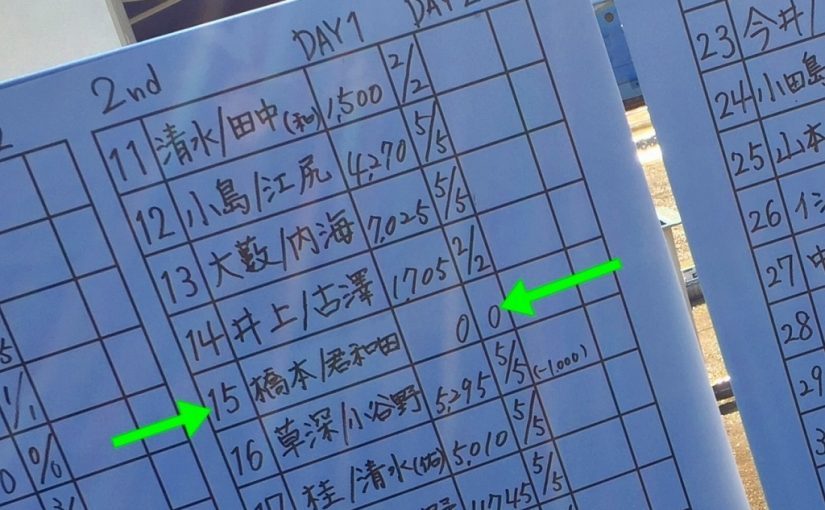 2nd DAY1
11 清水/田中(和) 1,500 2/2
12 小島/江尻 4,270 5/5
13 大藪/内海 7,025 5/5
14 井上/古澤 1,705 2/2
15 橋本/君和田 0 0
16 草深/小谷野 5,295 5/5 (-1,000)
17 桂/清水(佑) 5,010 5/5
5/5
23 今井/
24 小田島
25 山本
26
27 中
28
29